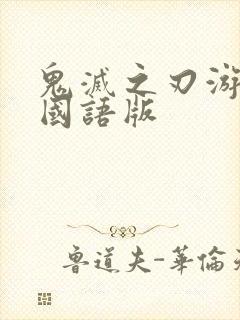 鬼滅之刃游
國語版
魯道夫-華倫